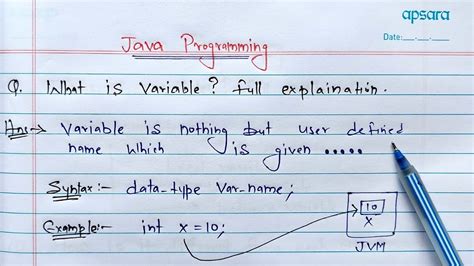 apsara
Date:__.__.__
Java Programming
Q. What is variable? full explaination.
Ans:→ Variable is nothing but user defined
name which is given .....
Syntax:- data-type Var-name;
Example:- int x=10;
10
x
JVM